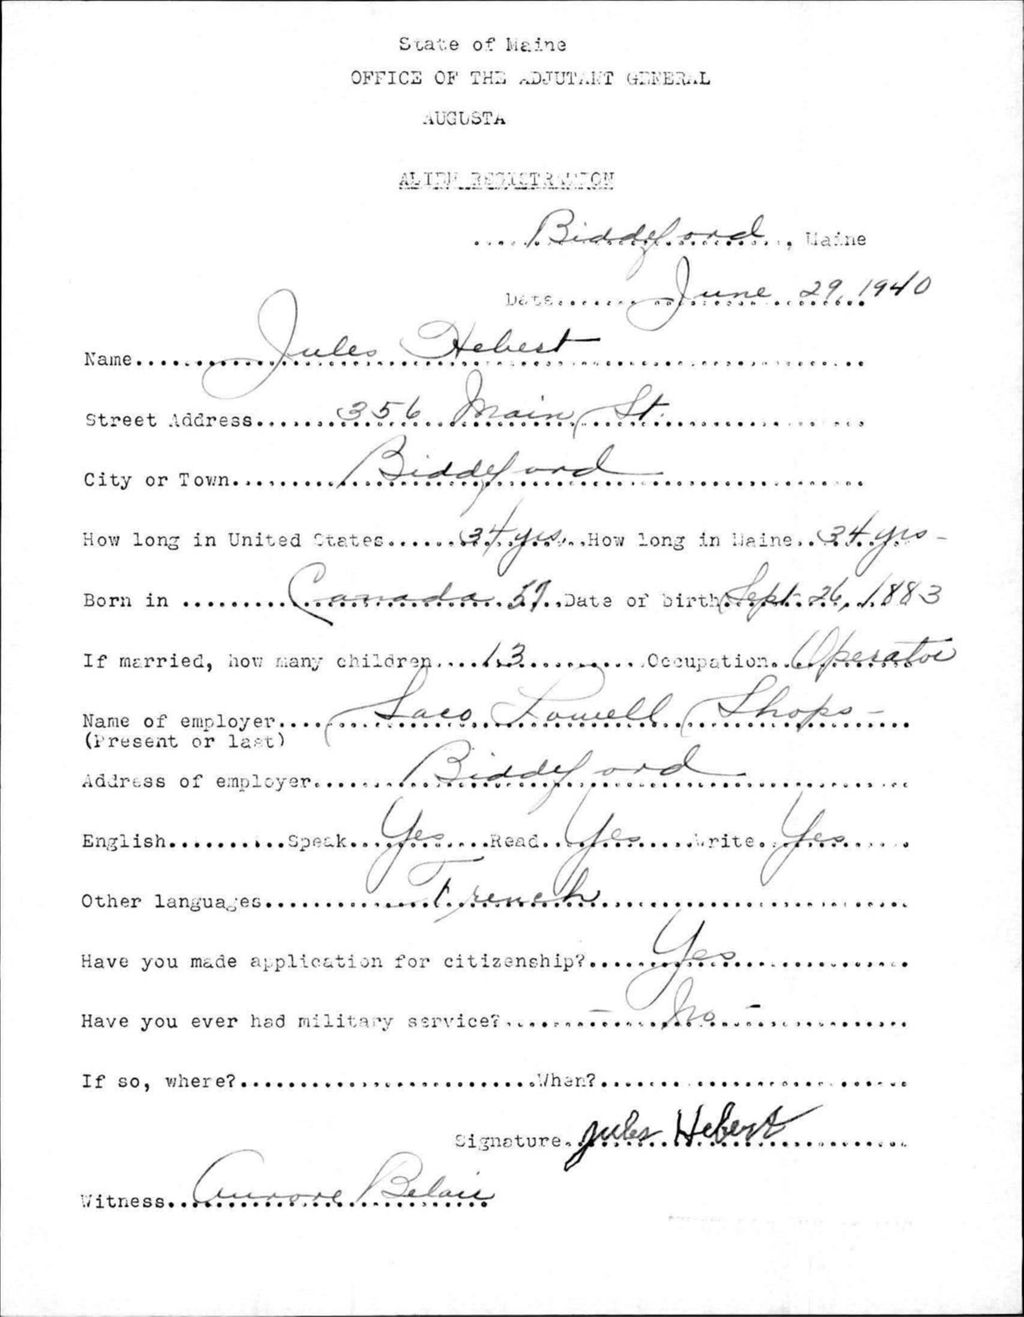 State of Maine
OFFICE OF THE ADJUTANT GENERAL
AUGUSTA
ALIEN REGISTRATION
Biddeford, Maine
Date June 29, 1940
Name Jules Hebert
Street Address 356 Main St.
City or Town Biddeford
How long in United States 34 yrs. How long in Maine 34 yrs -
Born in Canada 57 Date of birth Sept. 26, 1883
If married, how many children 13 Occupation Operator
Name of employer Saco Lowell Shops -
(Present or last)
Address of employer Biddeford
English Speak Yes Read Yes Write Yes
Other languages French
Have you made application for citizenship? Yes
Have you ever had military service? - No -
If so, where? When?
Signature Jules Hebert
Witness Aurore Belair